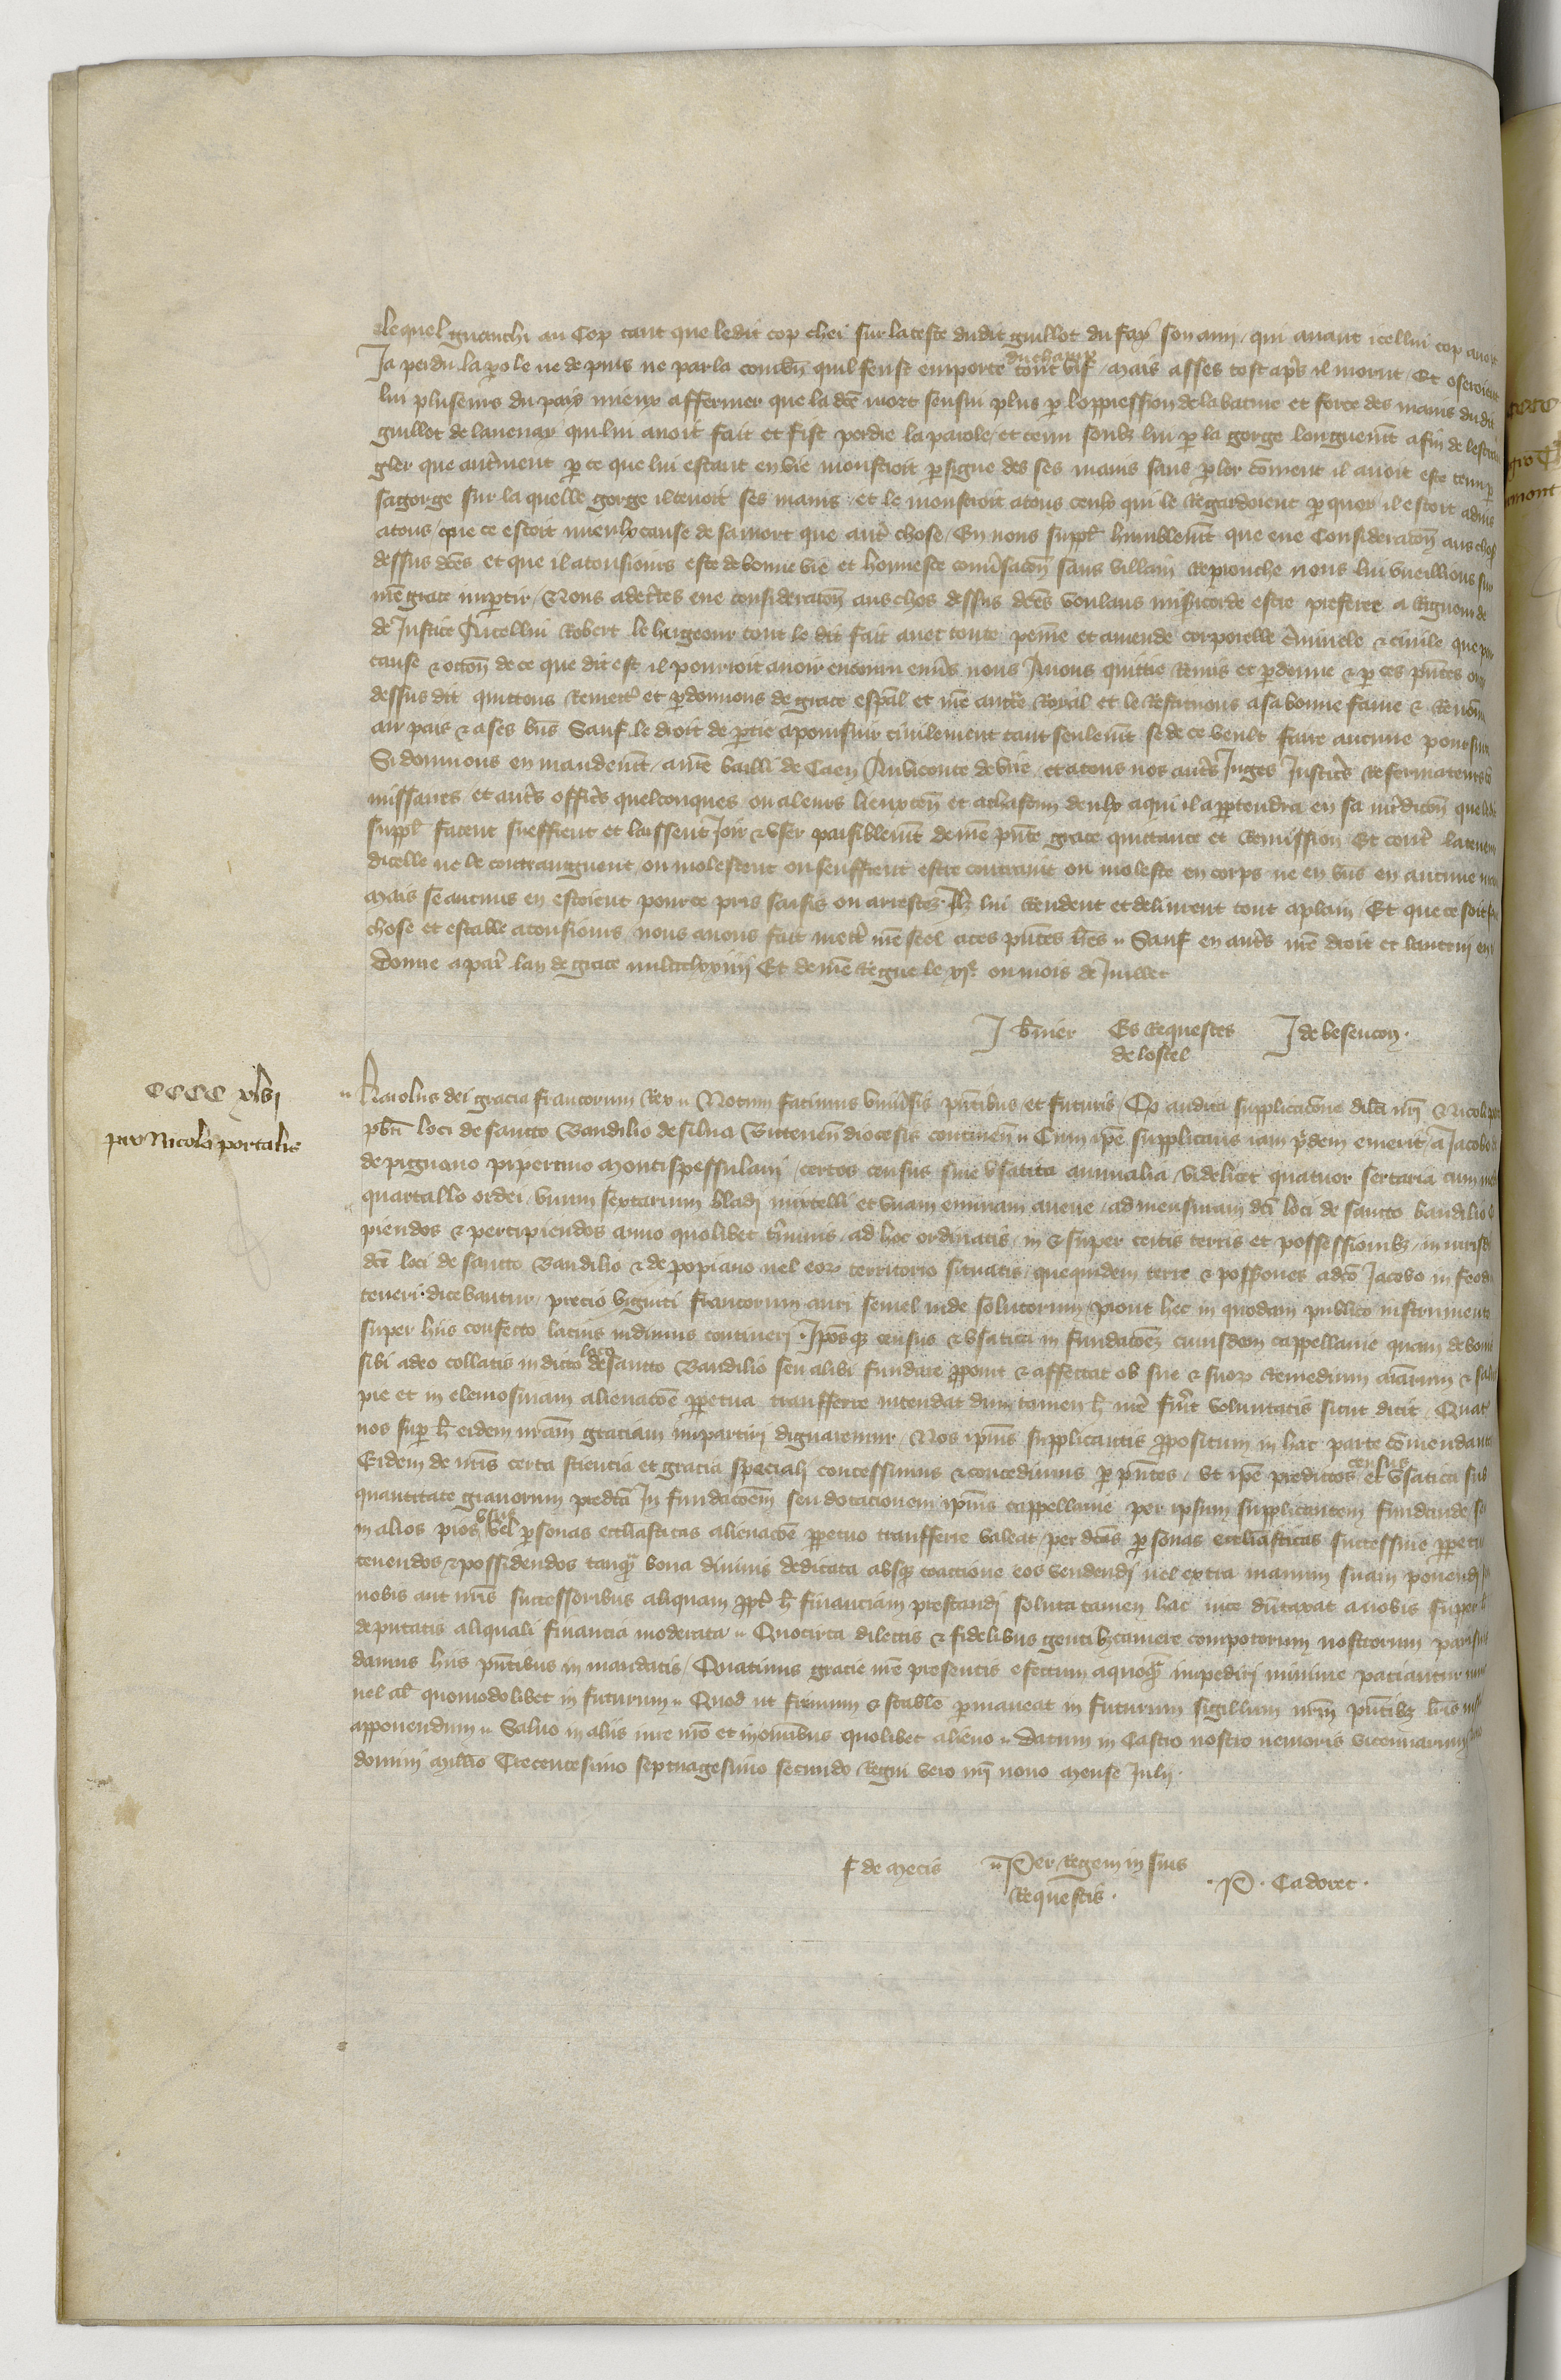 lequel guenchi au cop tant que ledit cop chei sur la teste dudit guillot du fay son amy qui avant icellui cop avoit
Ja perdu la parole ne depuis ne parla combn̄ quil feust emporte du champ tout vif / mais asses tost apr̄s il morut / Et oseroient
lui pluseurs du pais mieux affermer que la dcē mort sensui plus p loppression de la bature et force des mains dudit
guillot de lavenay qui lui avoit fait et fist perdre la parole et tenu soubz lui p la gorge longuemt̄ afin de lestran
gler que autr̄ment p ce que lui estant en vie monstroit p signe des ses mains sans pler coment il avoit este tenu p
sa gorge sur la quelle gorge il tenoit ses mains et le monstroit a tous ceulx qui le Regardoient p quoy il estoit advis
a tous que ce estoit mieulx cause de sa mort que autr̄ chose / En nous suppl̄ humblemt̄ que eue Consideracōn aus chos
dessus dcēs et que il a tousiours este de bonne vie et honneste conūsacōn sans villain Reprouche nous lui vueillions sur ce
nr̄e grace impartir / Nous adcertes eue consideracōn aus chos dessus dcēs voulans misericorde estre preferee a Rigueur de
de Justice A icellui Robert le hugeour tout le dit fait avec toute peine et amende corporelle criminele & civile que pour
cause & occōn de ce que dit est il pourroit avoir encouru enūs nous Avons quittie Remis et pdonne & p ces pn̄tes ou cas
dessus dit quittons Remettōs et pdonnons de grace esp̄al et nr̄e auctē Royal et le Restituons a sa bonne fame & Renōm
au pais & a ses biens Sauf le droit de ptie a poursuir civilement tant seulemt̄ se de ce veult faire aucune poursuite
Si donnons en mandemt̄ a nr̄e bailli de Caen Au viconte de vire et a tous nos autr̄s Juges Justicrs̄ Reformateurs cō
missaires et autr̄s officrs̄ quelconques ou a leurs lieuxten̄ et a chascun deulx a qui il appartendra en sa iurīdicōn que ledit
suppl̄ facent sueffrent et laissent Joir & user paisiblemt̄ de nr̄e pn̄te grace quittance et Remission Et contr̄ la teneur
dicelle ne le contraingnent ou molestent ou seuffrent estre contraint ou moleste en corps ne en biens en aucune man̄
Mais se aucuns en estoient pour ce pris saisis ou arrestez Ilz lui Rendent et delivrent tout a plain / Et que ce soit ferme
chose et estable a tousiours nous avons fait mettr̄ nr̄e seel a ces pn̄tes lr̄es Sauf en autr̄s nr̄e droit et lautruy en t
Donne a par̄ lan de grace mil ccclxxiiij Et de nr̄e Regne le xjᵉ ou mois de Juillet
J bn̄ier Es Requestes de lostel J de besencon
CCCC xlvj
pro Nicolao portalis
Karolus dei gracia francorum Rex Notum facimus univ̄sis pn̄tibus et futuris / Qd̄ audita supplicacōne dilc̄i nr̄i Nicolai por
pbr̄i loci de sancto Baudilio de silva Uticen̄ diocesis continen̄ Cum ip̄e supplicans iam pridem emerit a Jacobo
de pignano pipertino Montispessulani certos census sive usatica annualia / videlicet quatuor sextaria cum uno
quartallo ordei / unum sextarium bladi mixtelli et unam eminam avene / ad mensuram dcī loci de sancto baudilio
piendos & percipiendos anno quolibet tr̄minis ad hoc ordinatis in & super certis terris et possessionibz in iurisd
dcī loci de sancto Baudilio & de popiano vel eoꝝ territorio situatis quequidem terre & poss̄iones adcō Jacobo in feodū
teneri dicebantur precio viginti francorum auri semel inde solutorum prout hec in quodam publico instrumento
super hiis confecto latius vidimus contineri Ipōsqz census & usatica in fundacōem cuiusdem cappellanie quam de bonis
sibi a deo collatis in dicto loco de sancto Baudilio seu alibi fundare pponit & affectat ob sue & suoꝝ Remedium aiārum & salutem
pie et in elemosinam alienacōe ppetua transferre intendat dum tamen h nr̄e fuer̄it voluntatis sicut dicit / Quat̄
nos sup h eidem nrām graciam impartiri dignaremur / Nos ipīus supplicantis ppositum in hac parte cōmendantes
Eidem de nrīs certa sciencia et gracia speciali concessimus & concedimus p pn̄tes / ut ip̄e predictos census et usatica sub
quantitate granorum predcā In fundacōem seu dotacionem ipīus cappellanie per ipsum supplicantem fundande seu
in alios pios usus vel psonas ecclīasticas alienacōe ppetuo transferre valeat / per dcās psonas ecclīasticas successive ppetuo
tenendos & possidendos tanqm̄ bona divinis dedicata absqz coactione eos vendendi vel extra manum suam ponendi seu
nobis aut nrīs successoribus aliquam pptr̄ h financiam prestandi soluta tamen hac vice dūtaxat a nobis super h
deputatis aliquali financia moderata Quocirca dilectis & fidelibus gentibz camere compotorum nostrorum parisius
damus hiis pn̄tibus in mandatis / Quatinus gracie nr̄e presentis efectum a quoqm̄ impediri minime paciantur nunc
vel al̄ quomodolibet in futurum Quod ut firmum & stabile pmaneat in futurum sigillum nrm̄ pn̄tibz lrīs ius
apponendum Salvo in aliis iure nrō et in om̄ibus quolibet alieno Datum in Castro nostro nemoris vicennarum anno
domini Mill̄mo Trecentesimo septuagesimo secundo Regni vero nrī nono Mense Julii
f de Metis Per Regem in suis Requestis P. Cadoret